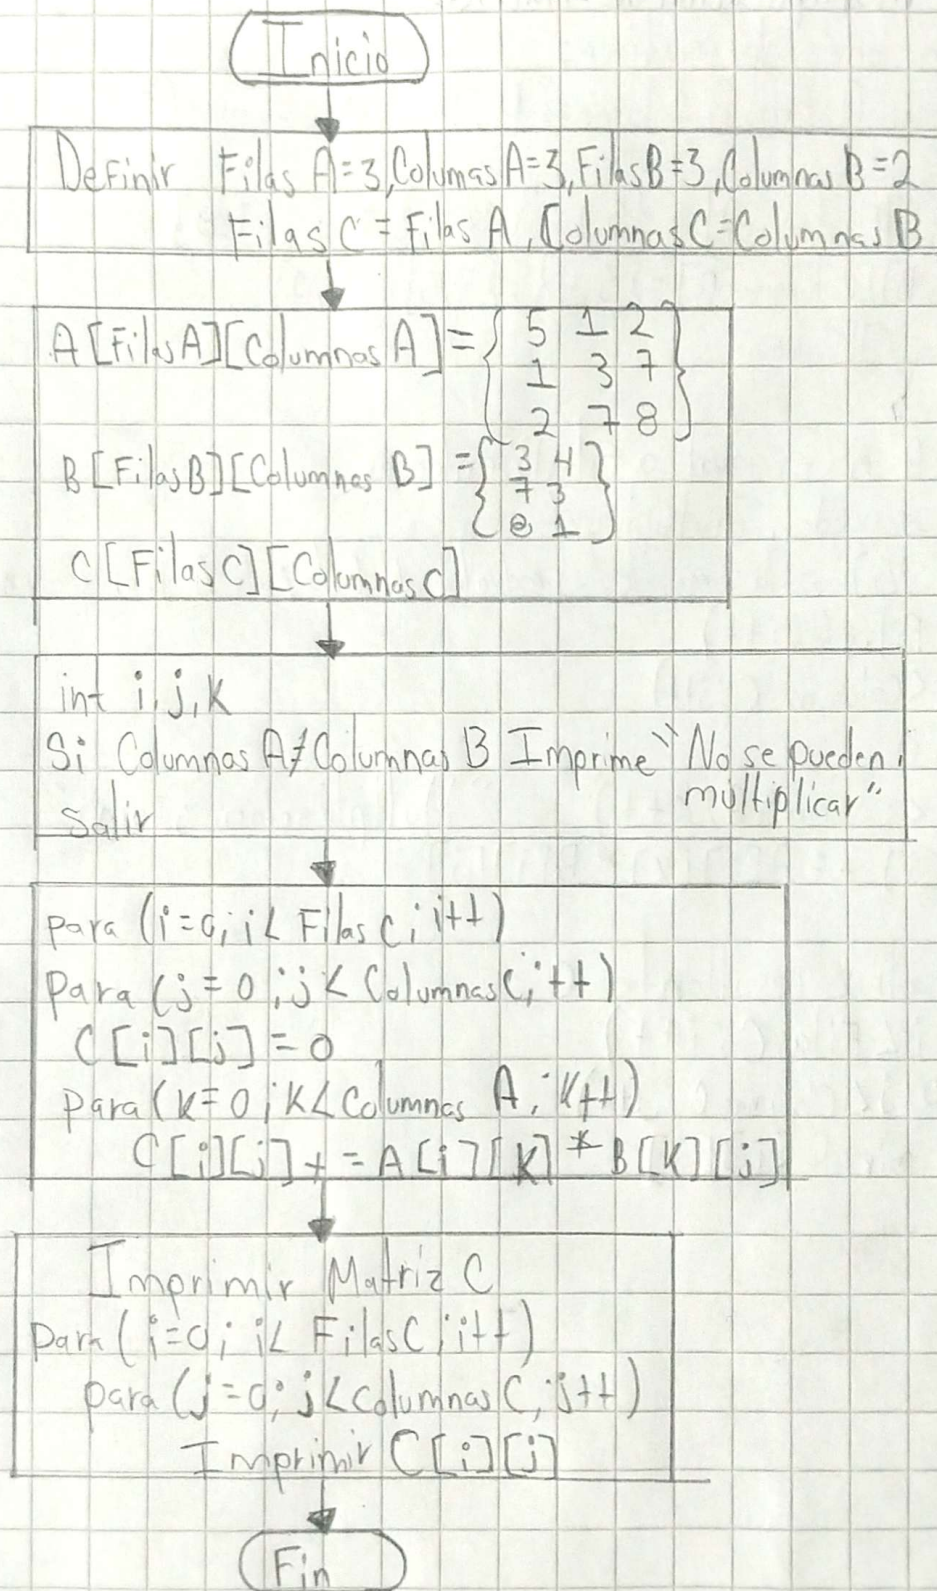 Inicio
Definir Filas A=3, Columas A=3, Filas B=3, Columnas B=2
Filas C = Filas A, Columnas C=Columnas B
A [Filas A][Columnas A] = { 5 1 2
1 3 7
2 7 8 }
B [Filas B][Columnas B] = { 3 4
7 3
1 }
C [Filas C][Columnas C]
int i, j, k
Si Columnas A≠Columnas B Imprime "No se pueden
multiplicar"
Salir
para (i=0; i< Filas C; i++)
para (j=0; j< Columnas C; ++)
C[i][j]=0
para (k=0; k<Columnas A; k++)
C[i][j]+=A[i][k]*B[k][j]
Imprimir Matriz C
para (i=0; i< Filas C; i++)
para (j=0; j<Columnas C; j++)
Imprimir C[i][j]
Fin